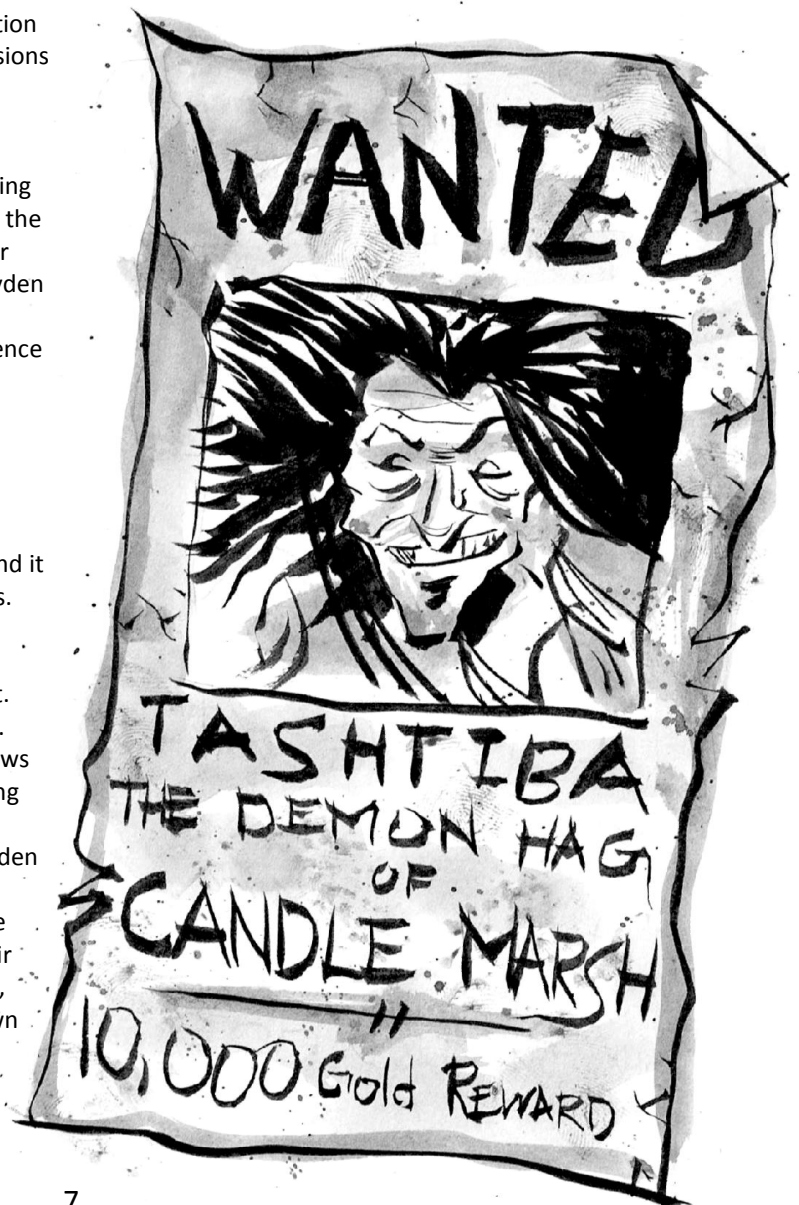 tion
sions
ing
the
r
yden
ence
nd it
s.
t.
.
ws
ng
den
e
ir
,
wn
WANTED
TASHTIBA
THE DEMON HAG
OF
CANDLE MARSH
10,000 Gold REWARD
7